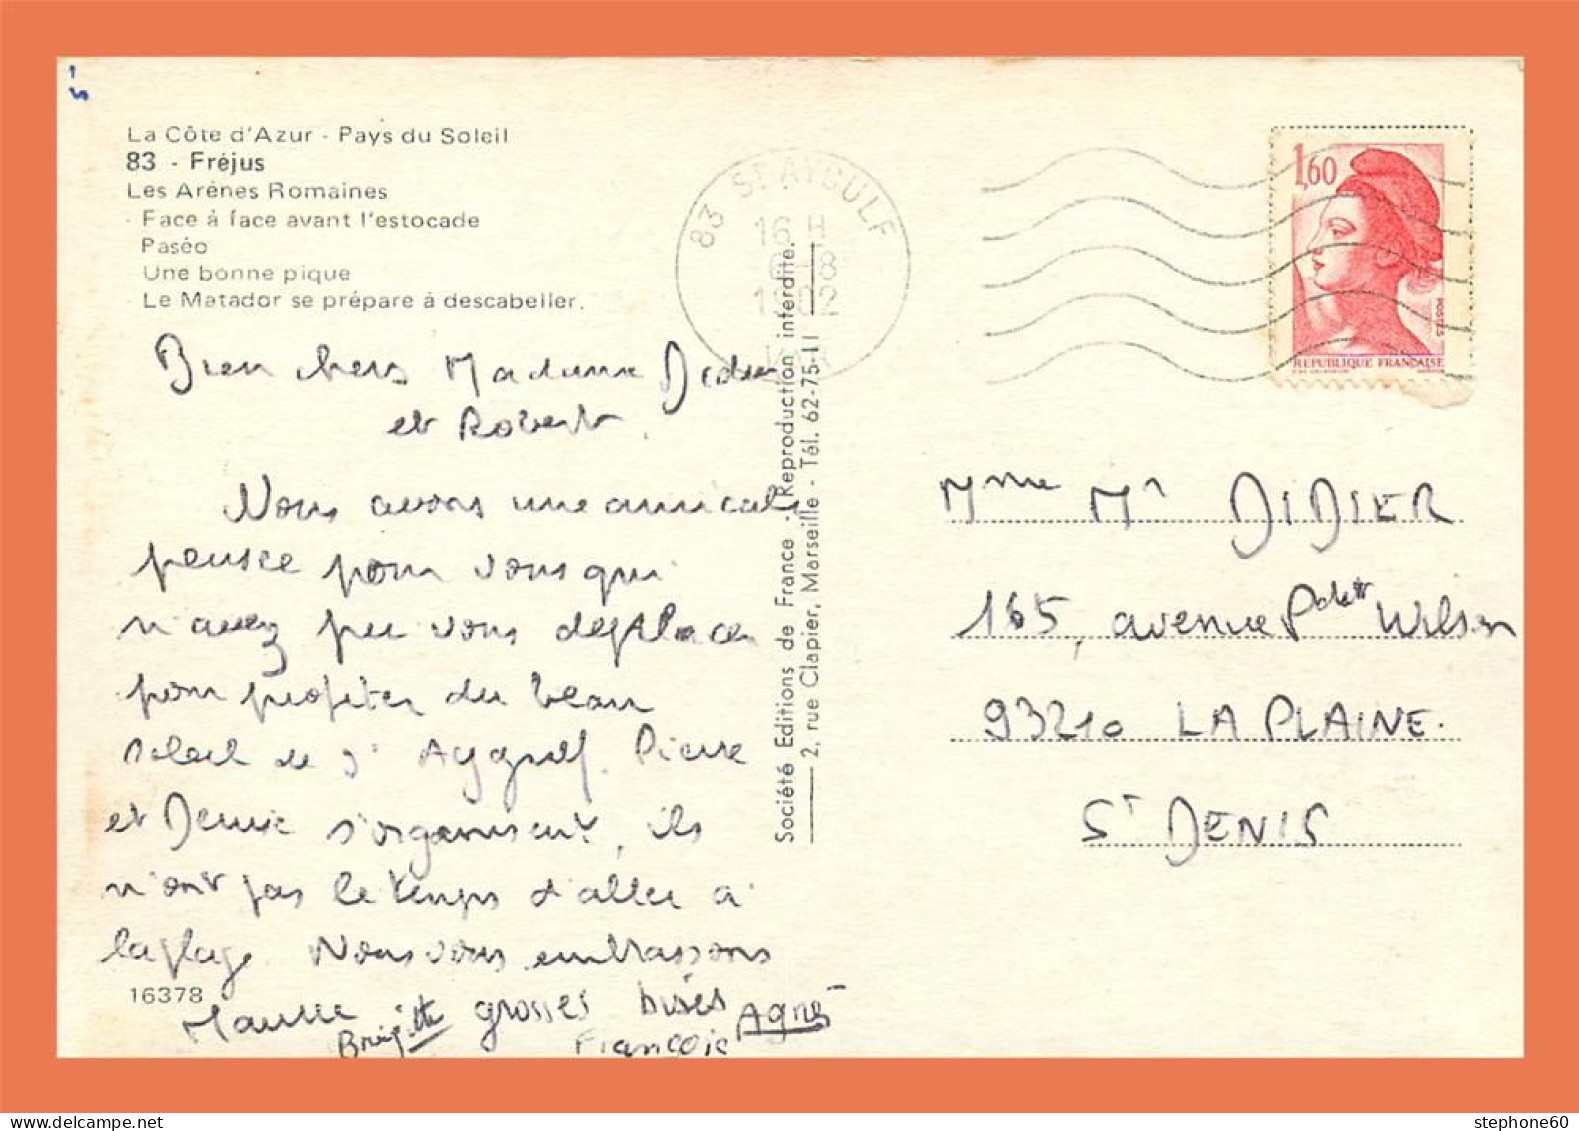 La Côte d'Azur - Pays du Soleil
83 - Fréjus
Les Arènes Romaines
- Face à face avant l'estocade
Paséo
Une bonne pique
- Le Matador se prépare à descabeller.
83 ST AYGULF
16 H
6-8
1982
VAR
1,60
POSTES
REPUBLIQUE FRANÇAISE
Bien chers Madame Didier
et Robert,
Nous avons une amicale
pensée pour vous qui
n'avez pu vous déplacer
pour profiter du beau
soleil de St Aygulf. Pierre
et Denise s'organisent, ils
n'ont pas le temps d'aller à
la plage. Nous vous embrassons
16378
grosses bises
Brigitte
Francois
Agnès
Société Editions de France - Reproduction interdite.
2, rue Clapier, Marseille - Tél. 62-75-11
Mme Mr DIDIER
165, avenue Pdt Wilson
93210 LA PLAINE.
ST DENIS
stephone60